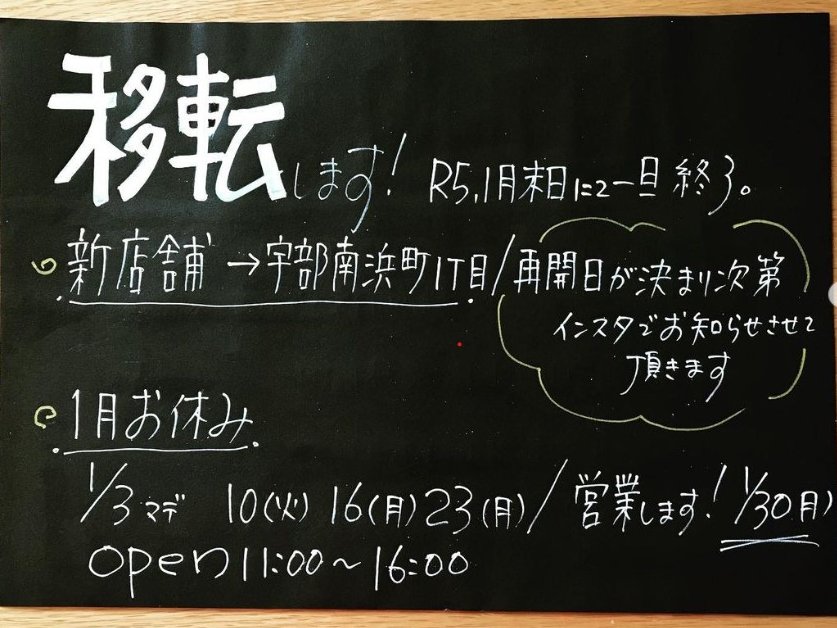 移転します! R5.1月末日にて一旦終了。
新店舗→宇部南浜町1丁目/再開日が決まり次第
インスタでお知らせさせて
頂きます
1月お休み
1/3マデ 10(火) 16(月) 23(月)/営業します! 1/30(月)
open 11:00~16:00